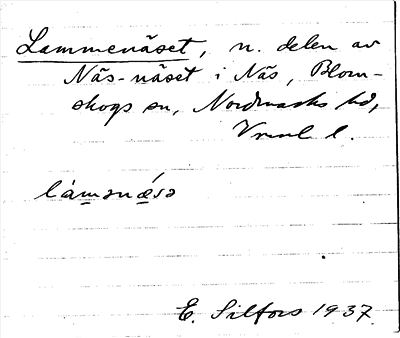 Lammenäset, n. delen av
Näs-näset i Näs, Blom-
skogs sn, Nordmarks hd,
Vrml l.
làmənǽsə
E. Silfors 1937.